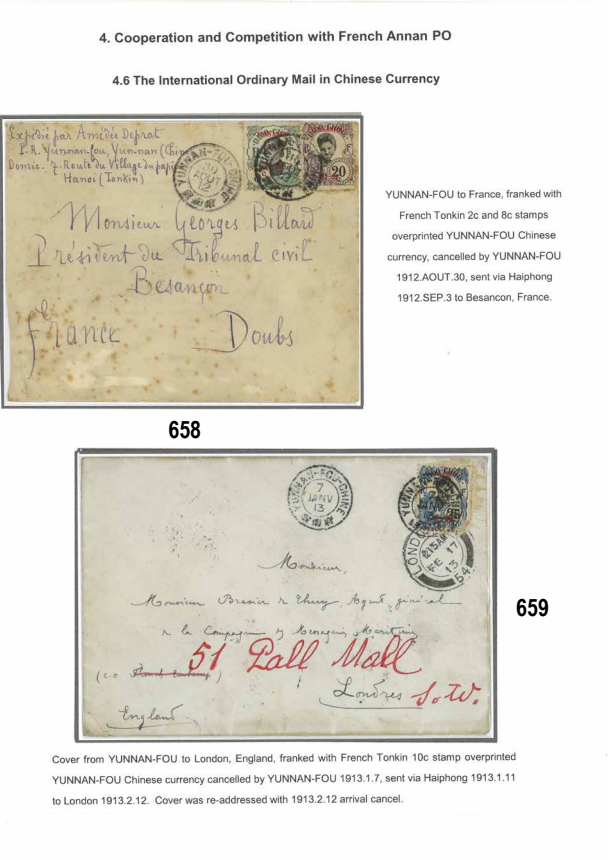 4. Cooperation and Competition with French Annan PO
4.6 The International Ordinary Mail in Chinese Currency
Expédié par Amédée Deprat
I.R. Yunnan-fou, Yun-nan (Chine
Domic. 7. Route du Village du papier
Hanoi (Tonkin)
YUNNAN-FOU-CHINE
30
AOUT
12
20
Monsieur Georges Billard
Président du Tribunal civil
Besançon
France Doubs
YUNNAN-FOU to France, franked with
French Tonkin 2c and 8c stamps
overprinted YUNNAN-FOU Chinese
currency, cancelled by YUNNAN-FOU
1912.AOUT.30, sent via Haiphong
1912.SEP.3 to Besancon, France.
658
YUNNAN-FOU-CHINE
7
JANV
13
LONDON
12.15AM
FE 17
13
54
Monsieur,
Monsieur Brasier Agent général
la Compagnie Messageries Maritimes
51 Pall Mall
(c.o )
Londres S.W.
England
659
Cover from YUNNAN-FOU to London, England, franked with French Tonkin 10c stamp overprinted
YUNNAN-FOU Chinese currency cancelled by YUNNAN-FOU 1913.1.7, sent via Haiphong 1913.1.11
to London 1913.2.12. Cover was re-addressed with 1913.2.12 arrival cancel.